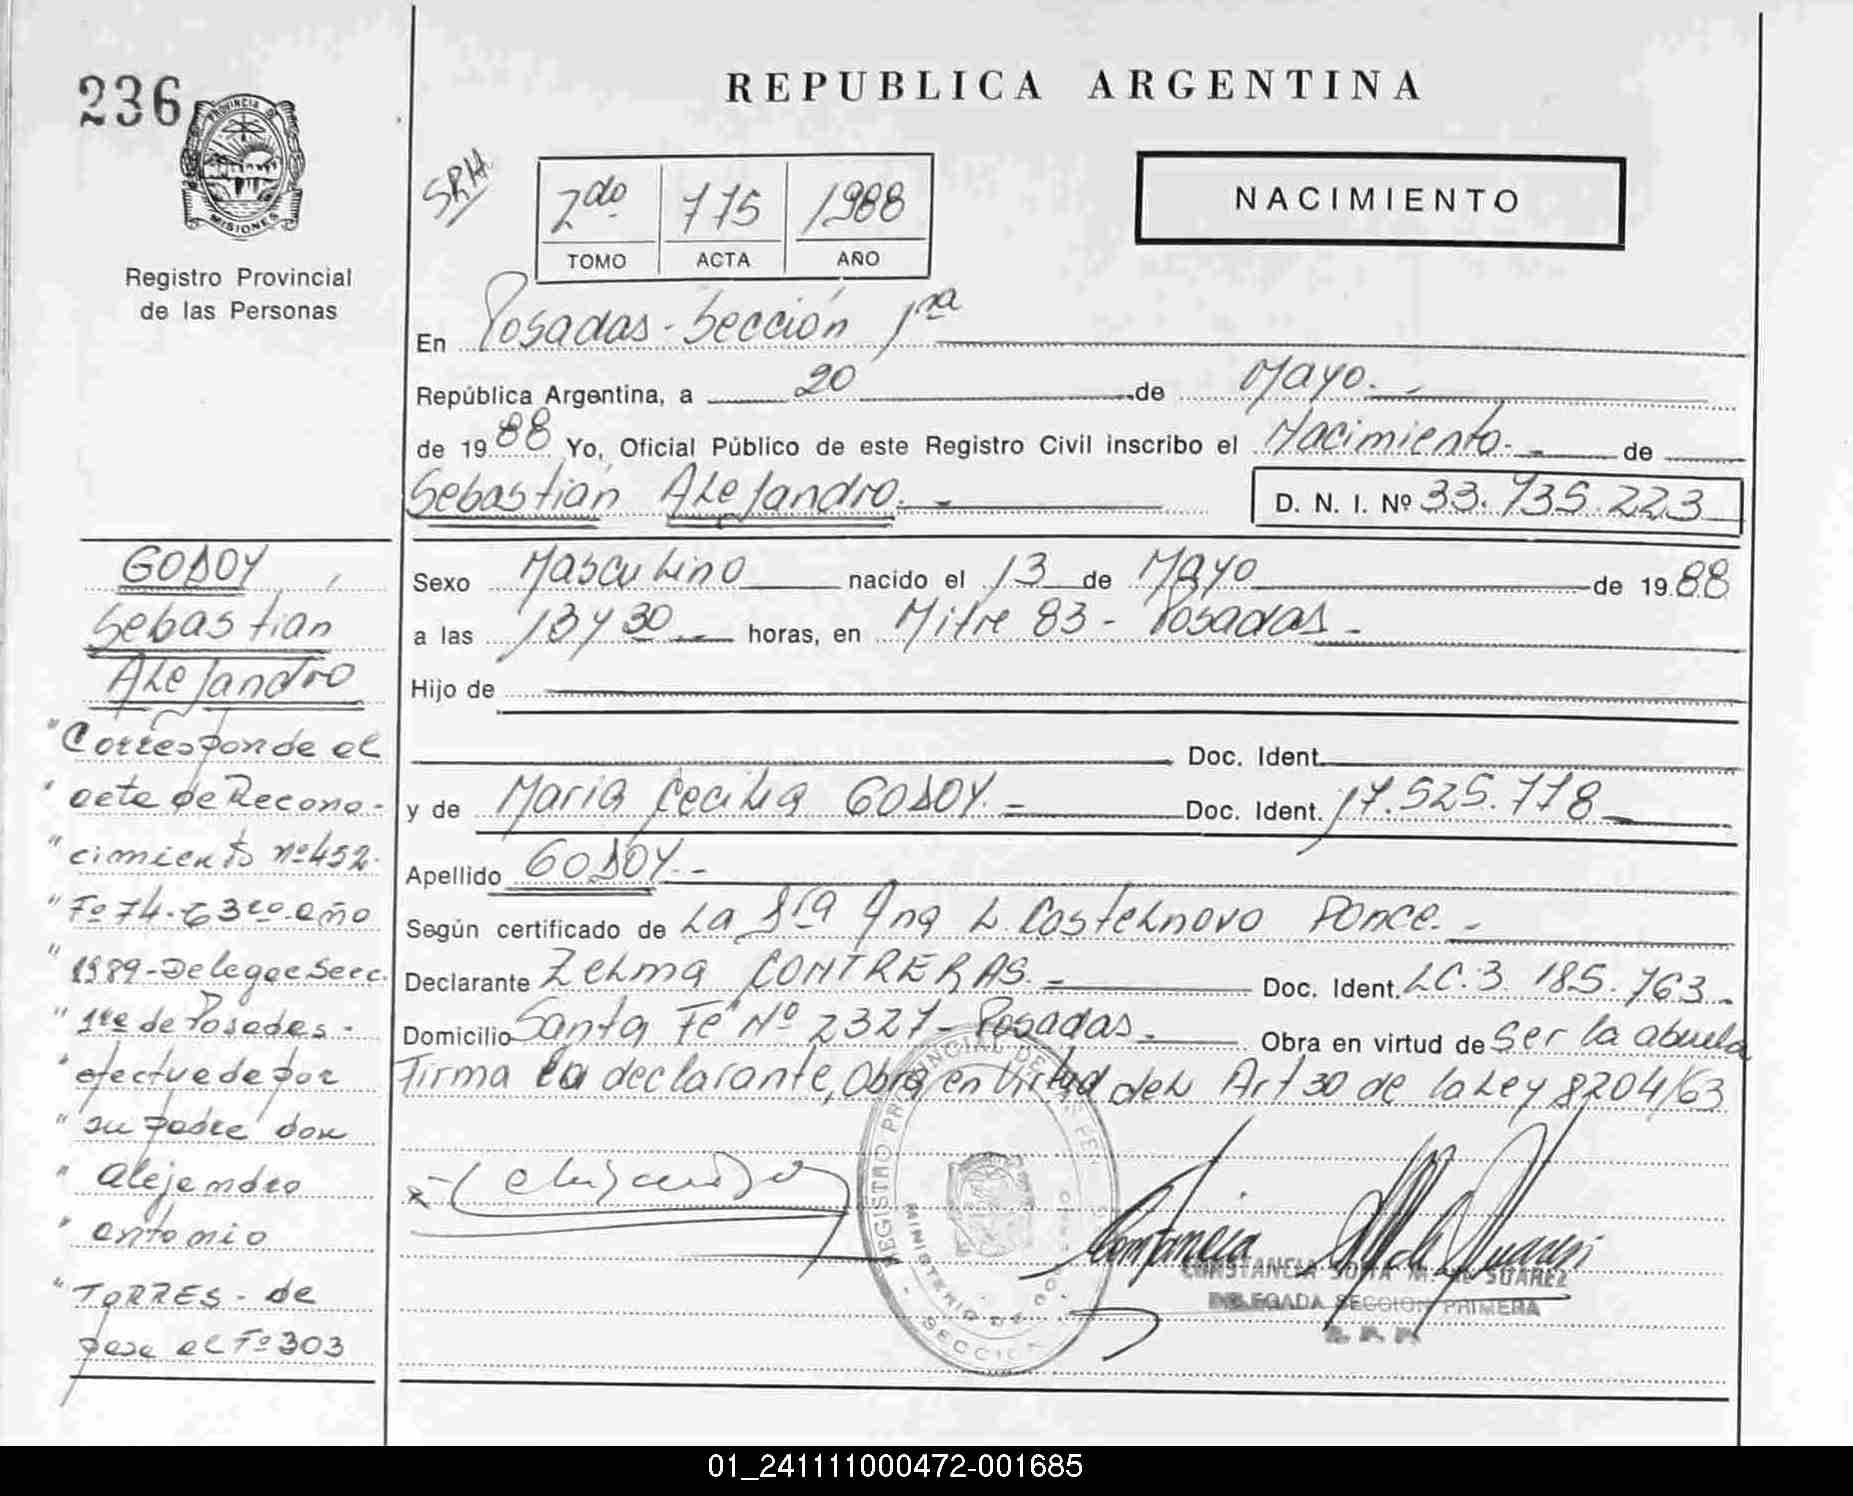 236
PROVINCIA DE
MISIONES
Registro Provincial
de las Personas
REPUBLICA ARGENTINA
SRH
2do 775 1988
TOMO ACTA AÑO
NACIMIENTO
En Posadas - Sección 1ra
República Argentina, a 20 de Mayo.
de 1988 Yo, Oficial Público de este Registro Civil inscribo el Nacimiento. de
Sebastian Alejandro. D. N. I. Nº 33.735.223
Sexo Masculino nacido el 13 de Mayo de 1988
a las 13 y 30 horas, en Mitre 83 - Posadas
Hijo de
Doc. Ident.
y de Maria Cecilia GODOY. Doc. Ident. 17.525.778
Apellido GODOY.
Según certificado de La Sra Ana L. Castelnovo Ponce.
Declarante Zelma CONTRERAS. Doc. Ident. LC. 3 185.763
Domicilio Santa Fe Nº 2327 - Posadas. Obra en virtud de Ser la abuela
Firma la declarante, Obra en virtud del Art 30 de la Ley 8204/63
GODOY
Sebastian
Alejandro
"Corresponde al
" acta de Recono-
" cimiento nº 452.
" Fº 74. T 3ro. año
" 1989 - Delegac Secc.
" 1ra de Posadas -
" efectuada por
" su padre don
" Alejandro
" Antonio
" TORRES - de
pase al Fº 303
REGISTRO PROVINCIAL DE LAS PER
MINISTERIO DE GOBIERNO
SECCION
CONSTANCIA SOFIA M. DE SUAREZ
DELEGADA SECCION PRIMERA
R. P. P.
01_241111000472-001685